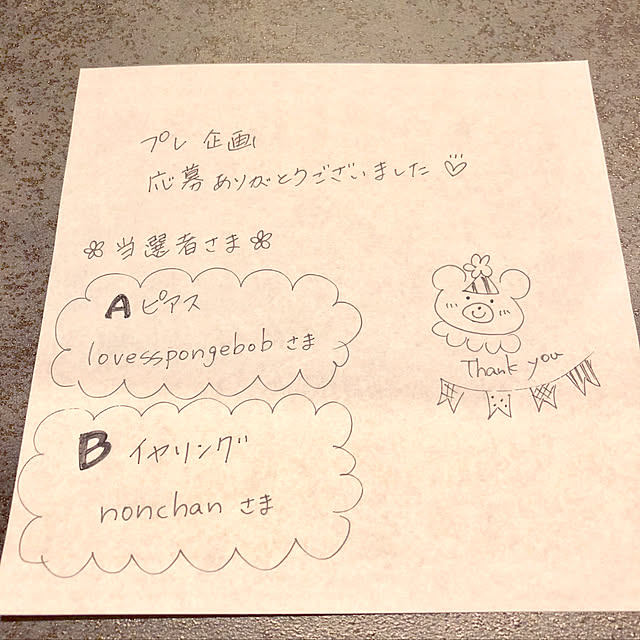 プレ企画
応募ありがとうございました♡
❀当選者さま❀
A ピアス
lovesspongebob さま
B イヤリング
nonchan さま
Thank you